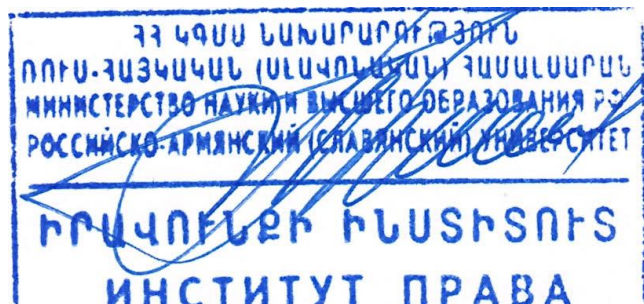 ՀՀ ԿԳՄՍ ՆԱԽԱՐԱՐՈՒԹՅՈՒՆ
ՌՈՒՍ-ՀԱՅԿԱԿԱՆ (ՍԼԱՎՈՆԱԿԱՆ) ՀԱՄԱԼՍԱՐԱՆ
МИНИСТЕРСТВО НАУКИ И ВЫСШЕГО ОБРАЗОВАНИЯ РФ
РОССИЙСКО-АРМЯНСКИЙ (СЛАВЯНСКИЙ) УНИВЕРСИТЕТ
ԻՐԱՎՈՒՆՔԻ ԻՆՍՏԻՏՈՒՏ
ИНСТИТУТ ПРАВА